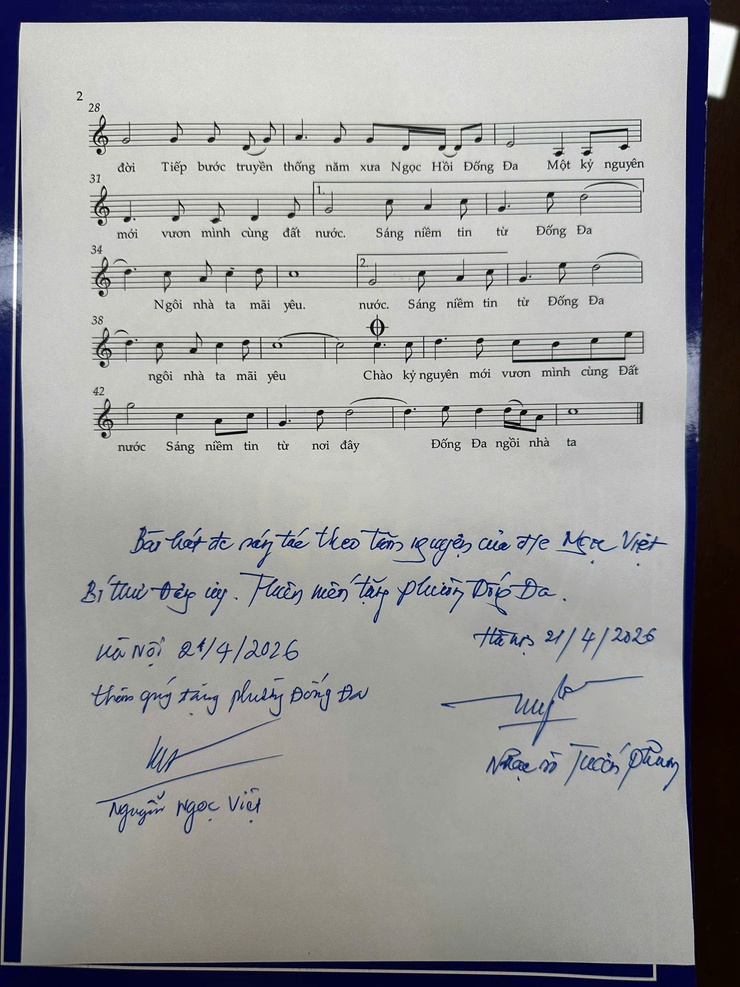 2
28
đời Tiếp bước truyền thống năm xưa Ngọc Hồi Đống Đa Một kỷ nguyên
31
1.
mới vươn mình cùng đất nước. Sáng niềm tin từ Đống Đa
34
2.
Ngôi nhà ta mãi yêu. nước. Sáng niềm tin từ Đống Đa
38
ngôi nhà ta mãi yêu Chào kỷ nguyên mới vươn mình cùng Đất
42
nước Sáng niềm tin từ nơi đây Đống Đa ngồi nhà ta
Bài hát đc sáng tác theo tâm nguyện của đ/c Ngọc Việt
Bí thư Đảng ủy. Thân mến tặng phường Đống Đa.
Hà Nội 21/4/2026
Hà Nội 21/4/2026
thân quý tặng phường Đống Đa
Nhạc sĩ Tuấn Phương
Nguyễn Ngọc Việt